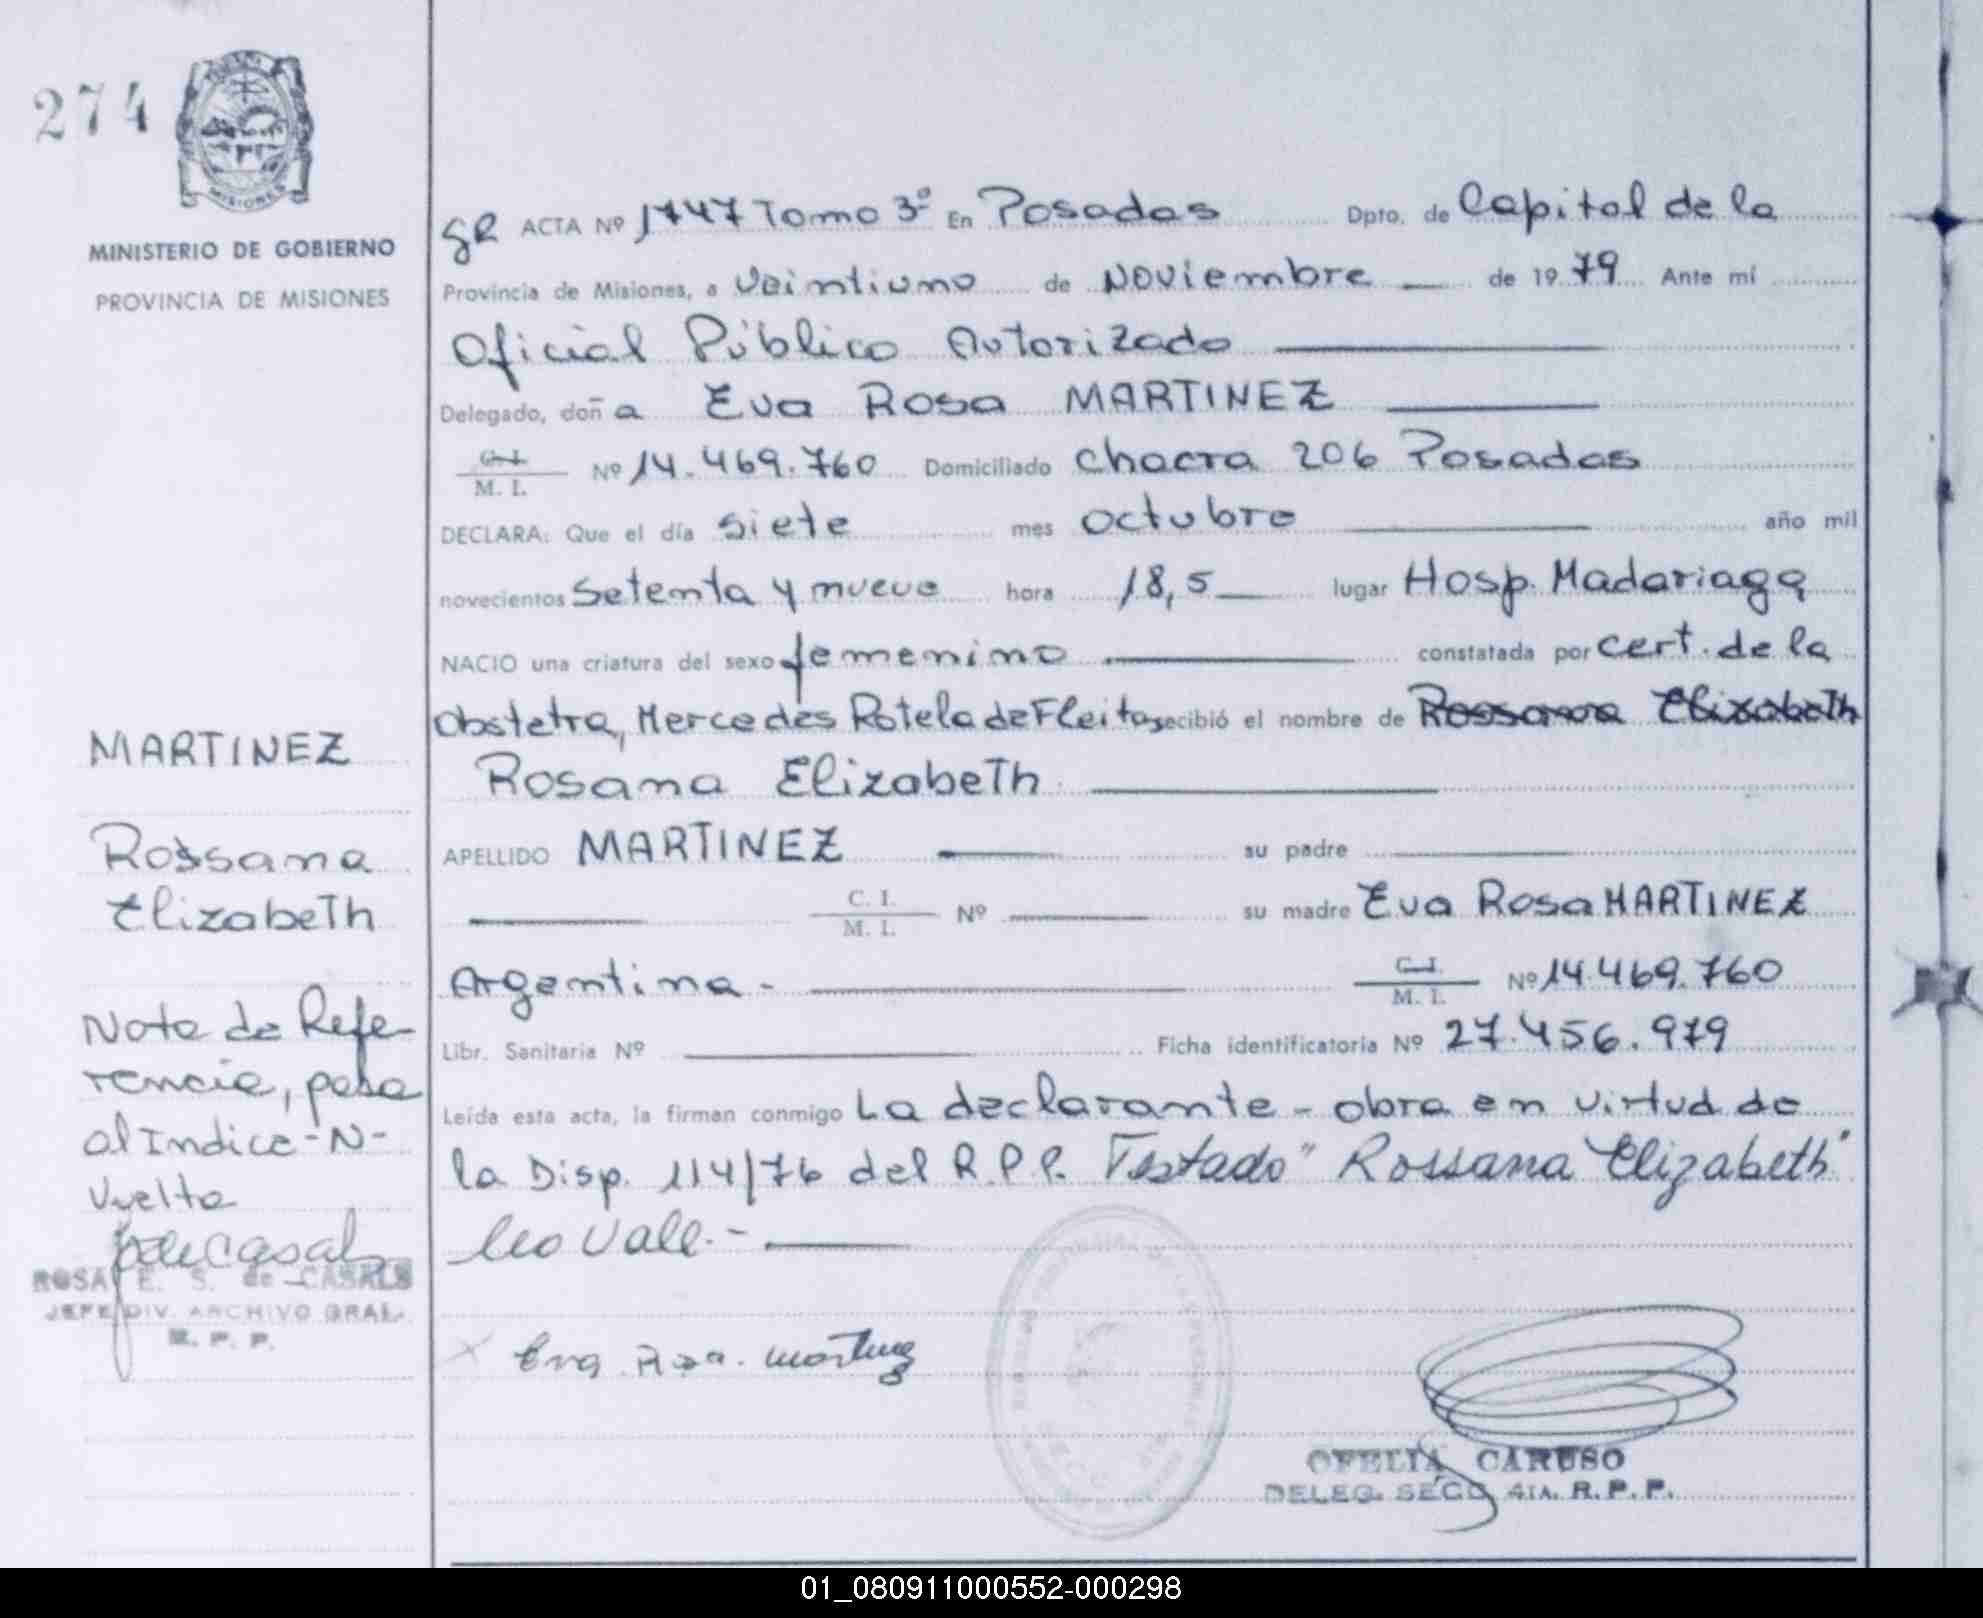 274
MISIONES
MINISTERIO DE GOBIERNO
PROVINCIA DE MISIONES
MARTINEZ
Rossana
Elizabeth
Nota de Refe-
rencia, pasa
al Indice-N-
Vuelta
ROSA E. S. de CASALS
JEFE DIV. ARCHIVO GRAL.
R. P. P.
GR ACTA Nº 1747 Tomo 3º En Posadas Dpto. de Capital de la
Provincia de Misiones, a Veintiuno de Noviembre de 19 79 Ante mí
Oficial Público Autorizado
Delegado, doña Eva Rosa MARTINEZ
C. I.
M. I. Nº 14.469.760 Domiciliado Chacra 206 Posadas
DECLARA: Que el día siete mes octubre año mil
novecientos Setenta y nueve hora 18,5 lugar Hosp. Madariaga
NACIO una criatura del sexo femenino constatada por cert. de la
Obstetra, Mercedes Rotela de Fleitas recibió el nombre de Rossana Elizabeth
Rosana Elizabeth
APELLIDO MARTINEZ su padre
C. I.
M. I. Nº su madre Eva Rosa MARTINEZ
Argentina - C. I.
M. I. Nº 14.469.760
Libr. Sanitaria Nº Ficha identificatoria Nº 27.456.979
Leída esta acta, la firman conmigo La declarante - obra en virtud de
la Disp. 114/76 del R.P.P. Testado "Rossana Elizabeth"
no Vale.-
Eva Rosa Martinez
OFELIA CARUSO
DELEG. SECC. 4TA. R. P. P.
01_080911000552-000298